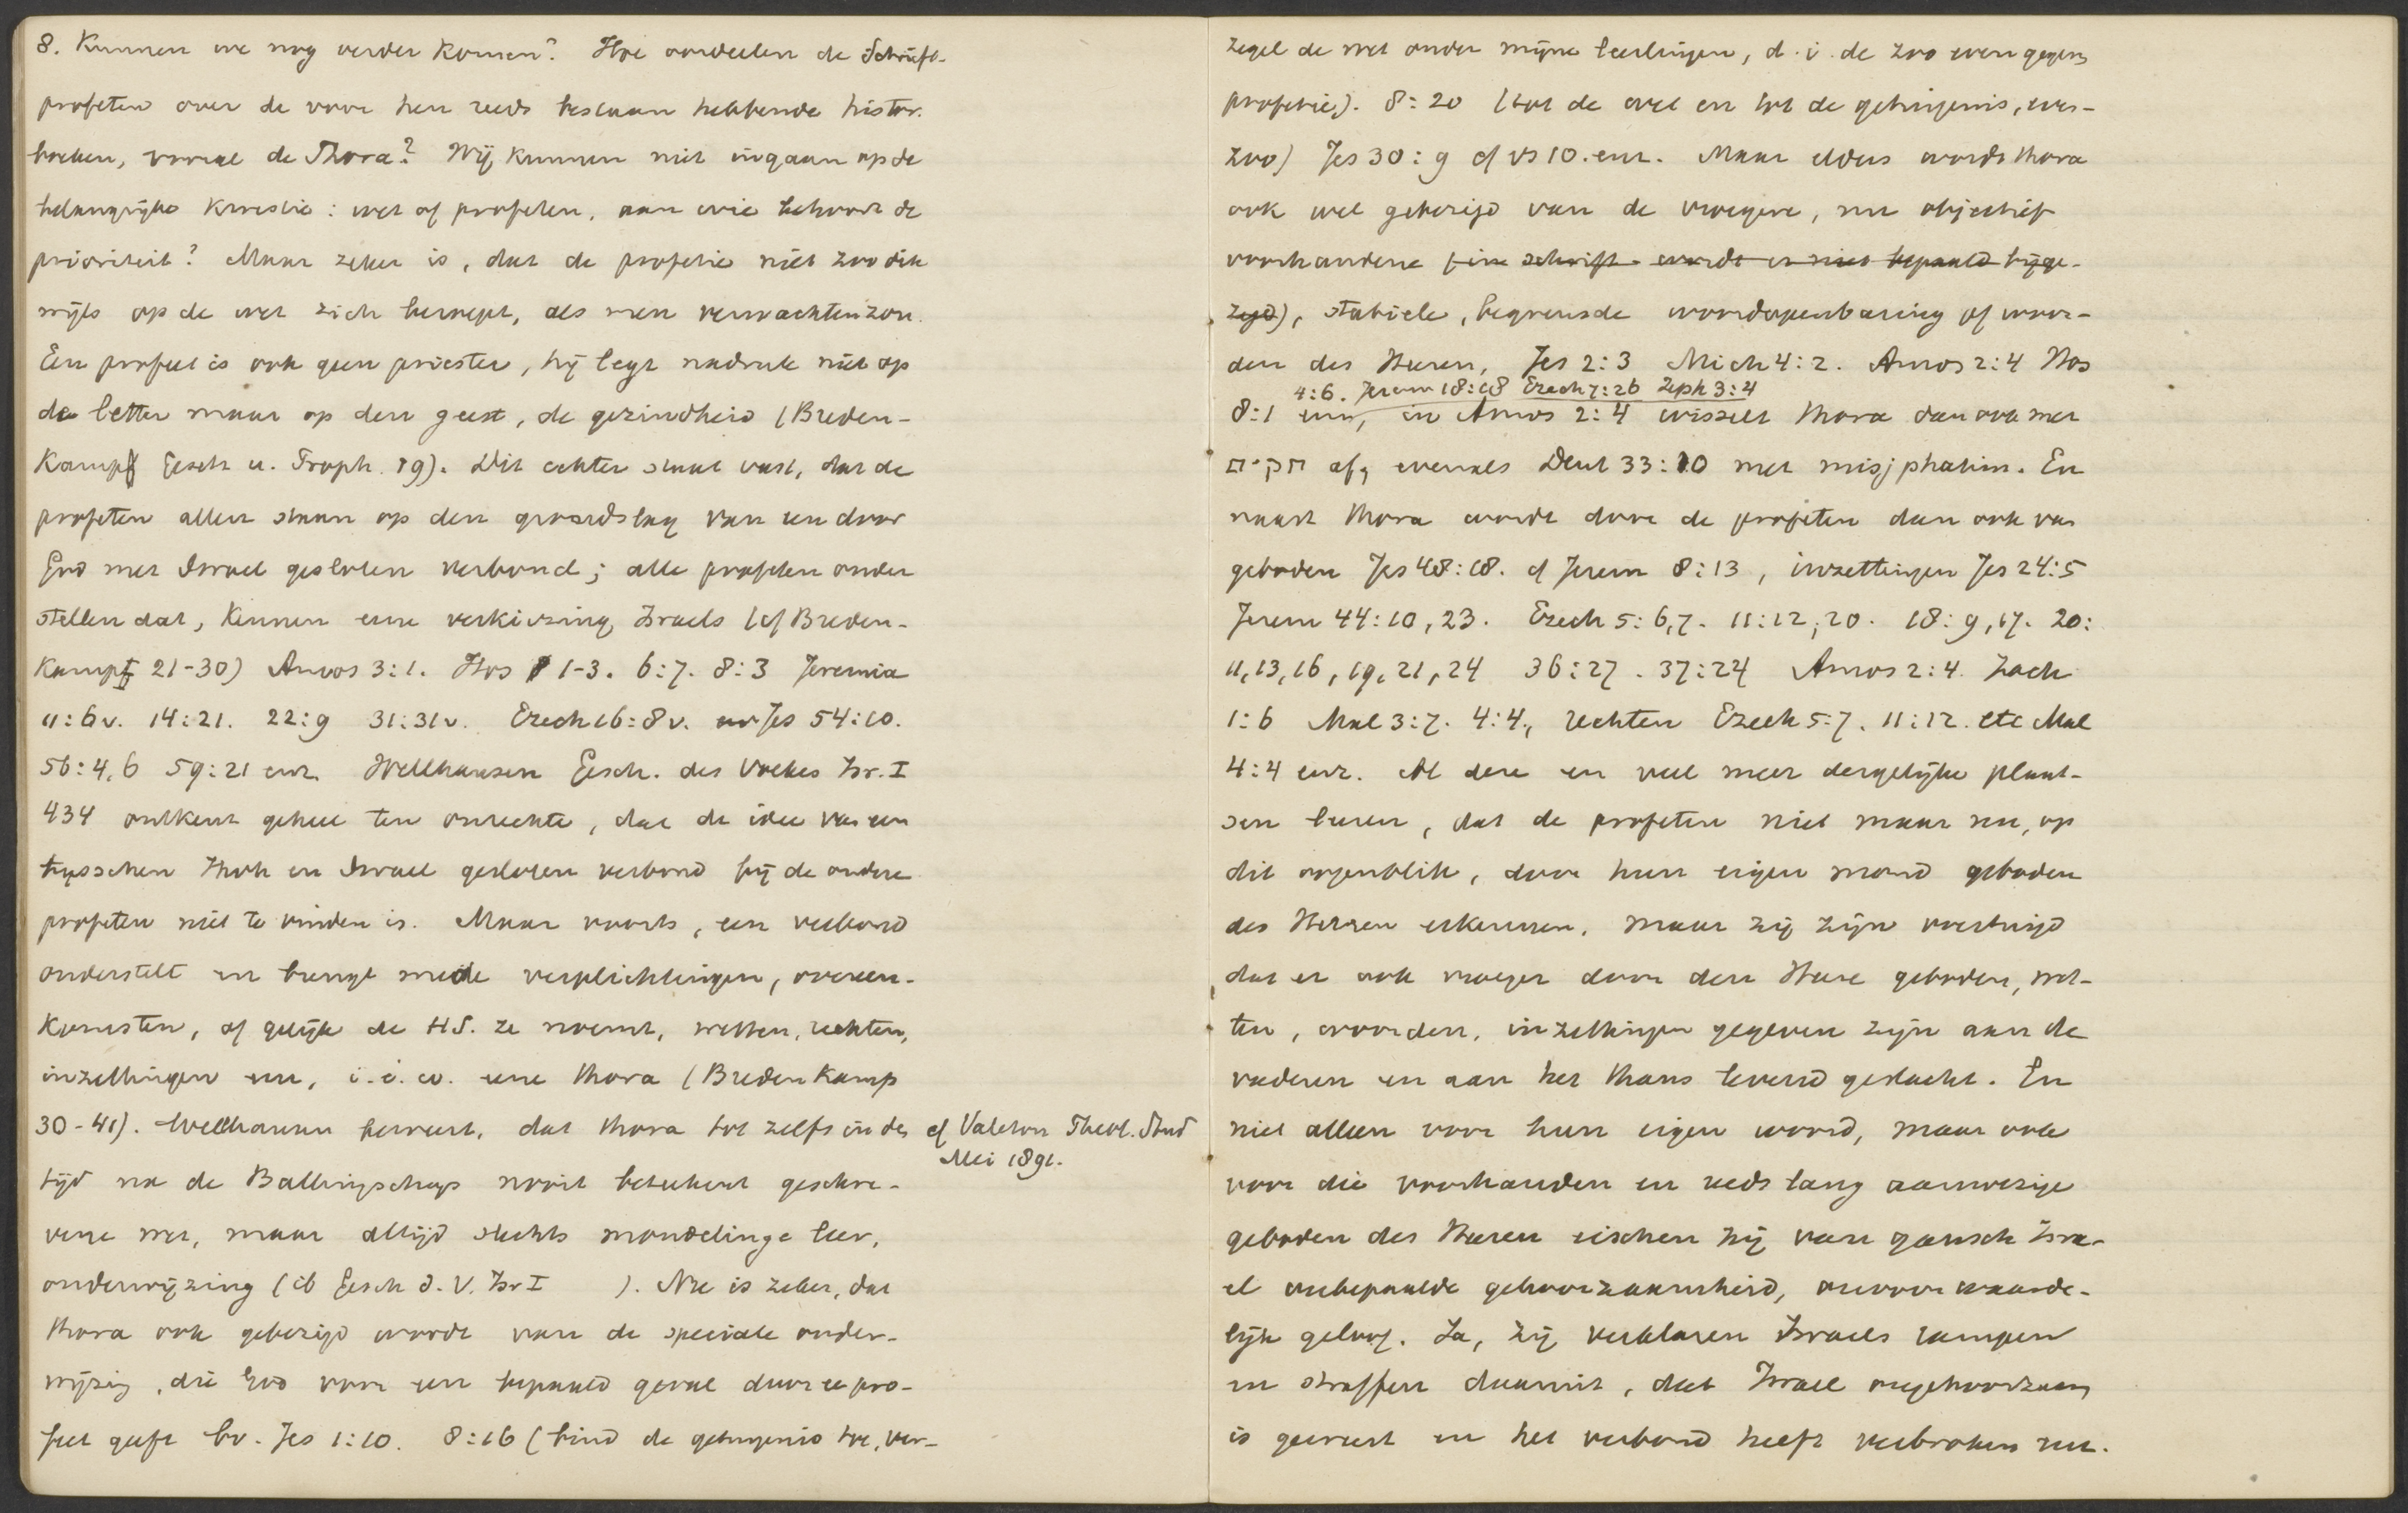 8. Kunnen we nog verder komen? Hoe oordeelen de Schrift-
profeten over de voor hen reeds bestaan hebbende histor.
boeken, vooral de Thora? Wij kunnen niet ingaan op de
belangrijke kwestie: wet of profeten, aan wie behoort de
prioriteit? Maar zeker is, dat de profetie niet zoo dik
wijls op de wet zich beroept, als men verwachten zou.
Een profeet is ook geen priester, hij legt nadruk niet op
de letter maar op den geest, de gezindheid (Breden-
kamp Gesetz u. Proph. 19). Dit echter staat vast, dat de
profeten allen staan op den grondslag van een door
God met Israel gesloten verbond; alle profeten onder
stellen dat, kennen eene verkiezing Israels (cf Breden-
kamp 21-30) Amos 3:1. Hos 1-3. 6:7. 8:3 Jeremia
11:6v. 14:21. 22:9 31:31v. Ezech 16:8v. Jes 54:10.
56:4,6 59:21 enz. Wellhausen Gesch. des Volkes Isr. I
434 ontkent geheel ten onrechte, dat de idee van een
tusschen Jhvh en Israel gesloten verbond bij de oudere
profeten niet te vinden is. Maar voorts, een verbond
onderstelt en brengt mede verplichtingen, overeen-
komsten, of gelijk de H.S. ze noemt, wetten, rechten,
inzettingen enz, i.é.w. eene thora (Bredenkamp
30-41). Wellhausen beweert, dat thora tot zelfs in den
cf Valeton Theol. Stud
Mei 1891.
tijd na de Ballingschap nooit beteekent geschre-
vene wet, maar altijd slechts mondelinge leer,
onderwijzing (ib Gesch d. V. Isr I ). Nu is zeker, dat
thora ook gebezigd wordt van de speciale onder-
wijzing, die God voor een bepaald geval door een pro-
feet geeft bv. Jes 1:10. 8:16 (bind de getuigenis toe, ver-
zegel de wet onder mijne leerlingen, d.i. de zoo even gegeven
profetie). 8:20 (tot de wet en tot de getuigenis, even-
zoo) Jes 30:9 cf vs 10. enz. Maar elders wordt thora
ook wel gebezigd van de vroegere, nu objectief
voorhandene (in schrift wordt er niet bepaald bijge-
zegd), stabiele, begrensde woordopenbaring of woor-
den des Heeren, Jes 2:3 Mich 4:2. Amos 2:4 Hos
4:6. Jerem 18:18 Ezech 7:26 Zeph 3:4
8:1 enz, in Amos 2:4 wisselt thora dan ook met
חקים af, evenals Deut 33:10 met misjphatim. En
naast thora wordt door de profeten dan ook van
geboden Jes 48:18. cf Jerem 8:13, inzettingen Jes 24:5
Jerem 44:10,23. Ezech 5:6,7. 11:12,20. 18:9,17. 20:
11,13,16,19,21,24 36:27. 37:24 Amos 2:4. Zach
1:6 Mal 3:7. 4:4, rechten Ezech 5:7. 11:12. etc Mal
4:4 enz. Al deze en veel meer dergelijke plaat-
sen leeren, dat de profeten niet maar nu, op
dit oogenblik, door hun eigen mond geboden
des Heeren erkennen, maar zij zijn overtuigd
dat er ook vroeger door den Heere geboden, wet-
ten, woorden, inzettingen gegeven zijn aan de
vaderen en aan het thans levend geslacht. En
niet alleen voor hun eigen woord, maar ook
voor die voorhanden en reeds lang aanwezige
geboden des Heeren eischen zij van gansch Isra-
el onbepaalde gehoorzaamheid, onvoorwaarde-
lijk geloof. Ja, zij verklaren Israels rampen
en straffen daaruit, dat Israel ongehoorzaam
is geweest en het verbond heeft verbroken enz.